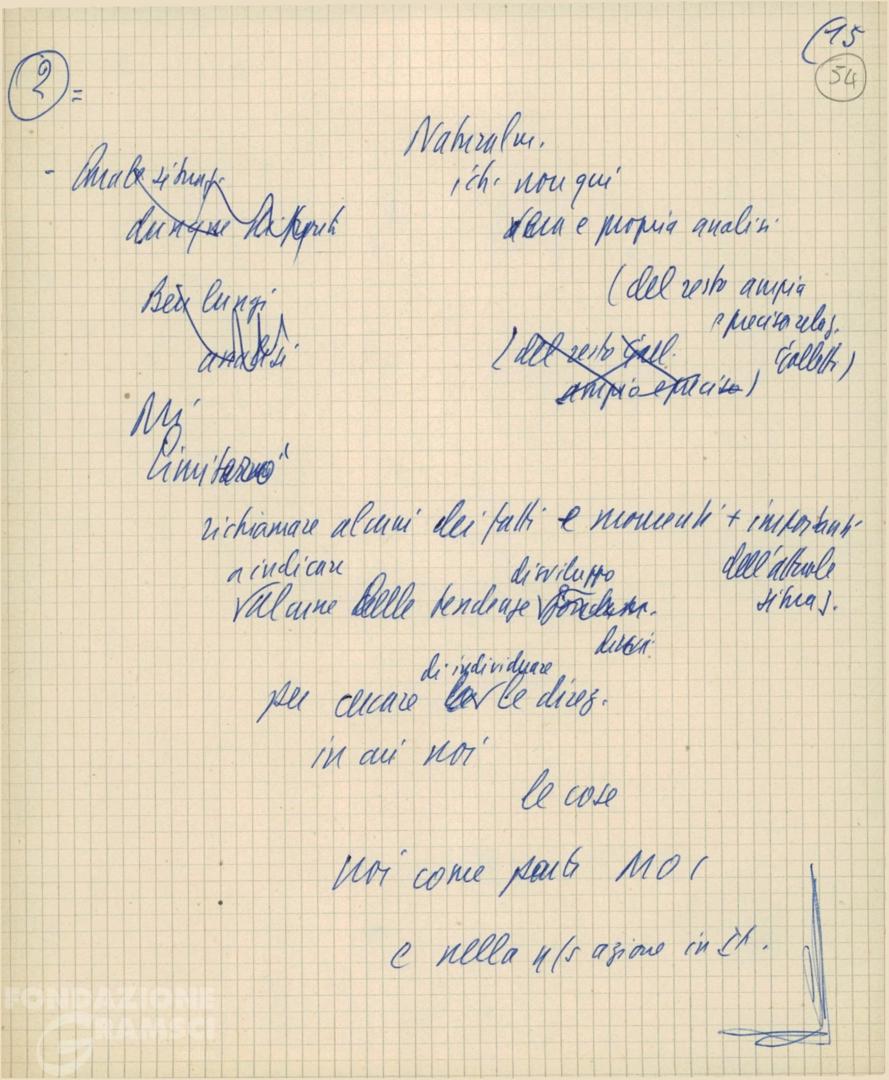 (15
54
2 =
Naturalm.
- Anche situaz.
ich. non qui
dunque
vera e propria analisi
(del resto ampia
Ben lungi
e precisa relaz.
analisi
(del resto
Galletti)
ampia e precisa)
Mi
limiterò
richiamare alcuni dei fatti e momenti + importanti
a indicare
di sviluppo
dell'attuale
alcune delle tendenze
situaz.
di individuare
per cercare le direz.
in cui noi
le cose
noi come parti MOI
e nella n/s azione in It.
FONDAZIONE
GRAMSCI